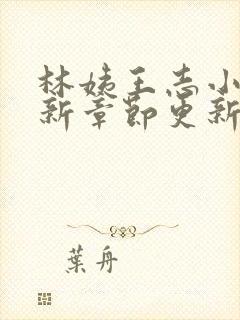 林姨王志小
新章节更新
葉舟